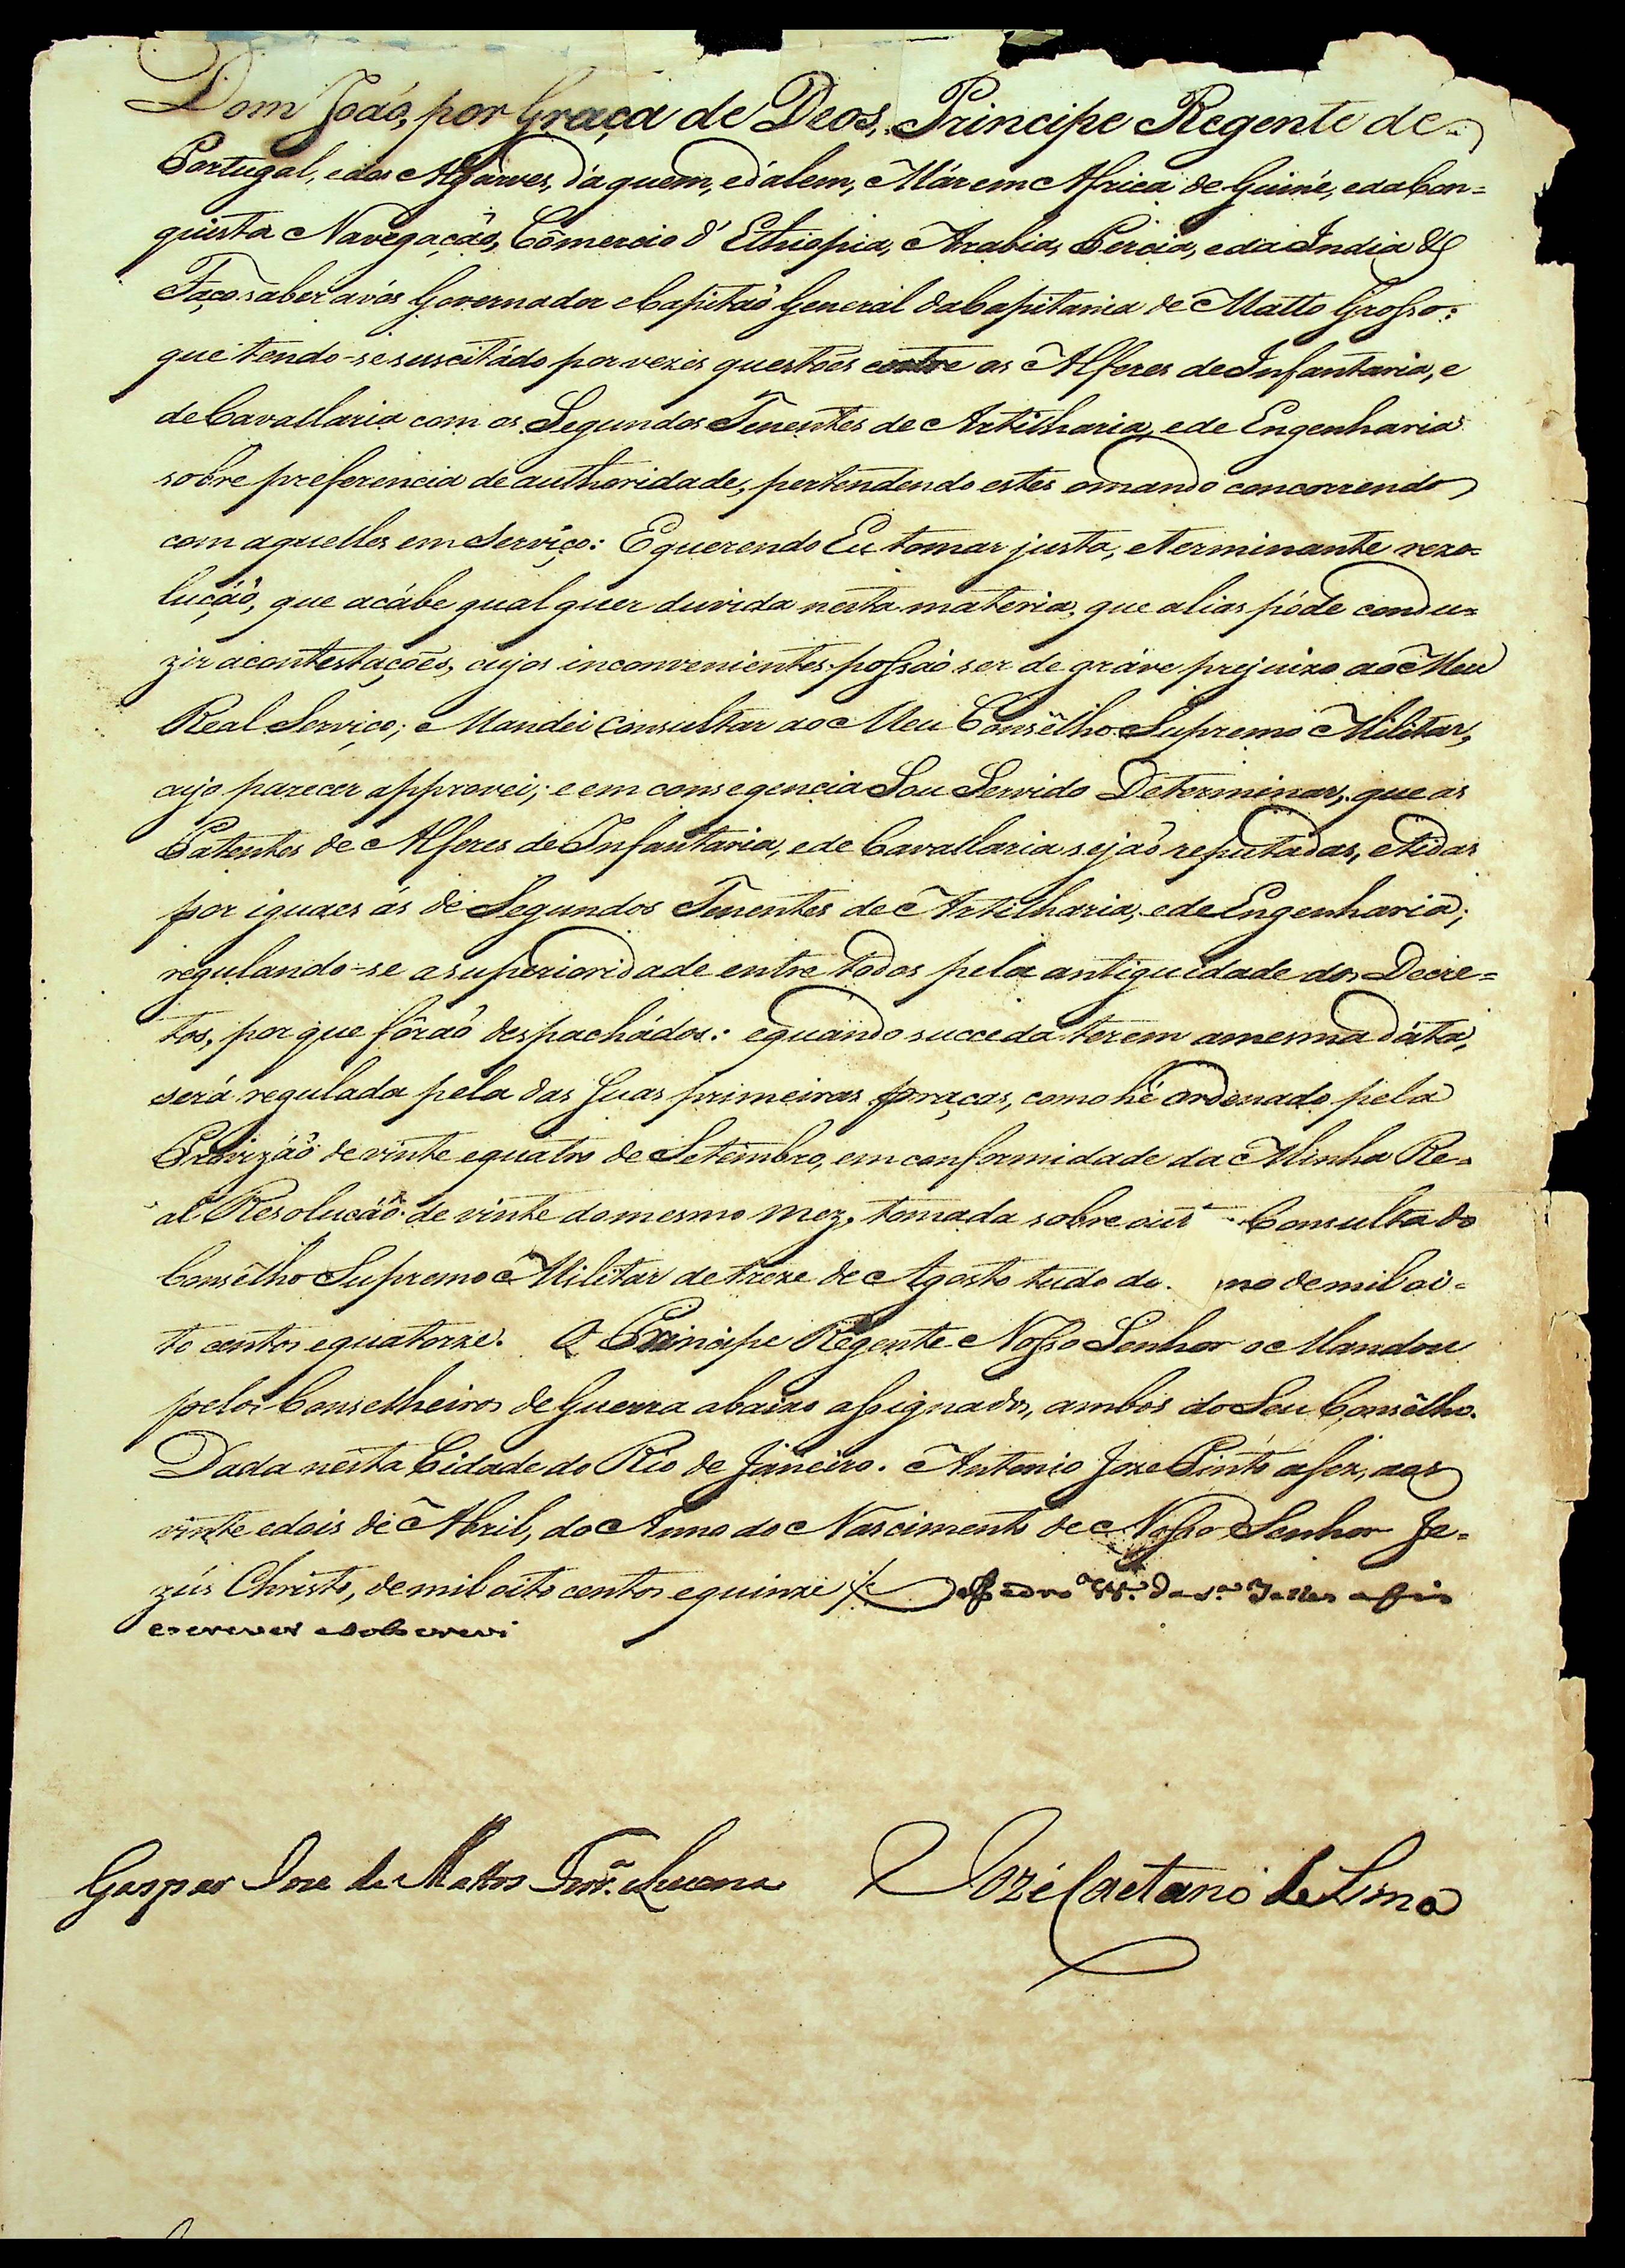 Dom João, por Graça de Deos, Principe Regente de
Portugal, e dos Algárves, d'aquem, e d'alem, Már em Africa de Guiné, e da Con=
quista Navegação, Cômercio d'Ethiopia, Arabia, Percia, e da India &
Faço saber a vós Governador e Capitaõ General da Capitania de Matto Grosso:
que tendo-se suscitádo por vezes questões entre os Alferes de Infantaria, e
de Cavallaria com os Segundos Tenentes de Artilharia, e de Engenharia
sobre preferencia de authoridade, pertendendo estes o mando concorrendo
com aquelles em Serviço: E querendo Eu tomar justa, e terminante rezo=
luçáõ, que acábe qualquer duvida nesta materia, que alias póde condu=
zir a contestações, cujos inconvenientes possaõ ser de gráve prejuizo ao Meu
Real Serviço; Mandei Consultar ao Meu Consêlho Supremo Militar,
cujo parecer approvei; e em conseqencia Sou Servido Determinar, que as
Patentes de Alferes de Infantaria, e de Cavallaria sejaõ reputadas, e tidas
por iguaes ás de Segundos Tenentes de Artilharia, e de Engenharia;
regulando-se a superioridade entre todos pela antiguidade dos Decre=
tos, por que fôraõ despachádos: e quando succeda terem a mesma dáta,
será regulada pela das Suas primeiras praças, como hé ordenado pela
Provizáõ de vinte e quatro de Setembro, em conformidade da Minha Re=
al Resoluçáõ de vinte do mesmo mez, tomada sobre Consulta do
Consêlho Supremo Militar de treze de Agosto tudo do no de mil oi=
to centos e quatorze. O Principe Regente Nosso Senhor o Mandou
pelos Conselheiros de Guerra abaixo assignados, ambos do Seu Consêlho.
Dada nesta Cidade do Rio de Janeiro. Antonio Joze Pinto a fez, aos
vinte e dois de Abril, do Anno do Nascimento de Nosso Senhor Je=
zús Christo, de mil oito centos e quinze Pedro Telles a fis
escrever e sobscrevi
Gaspar Jose de Mattos Ferr.ª e Lucena Jozé Caetano de Lima